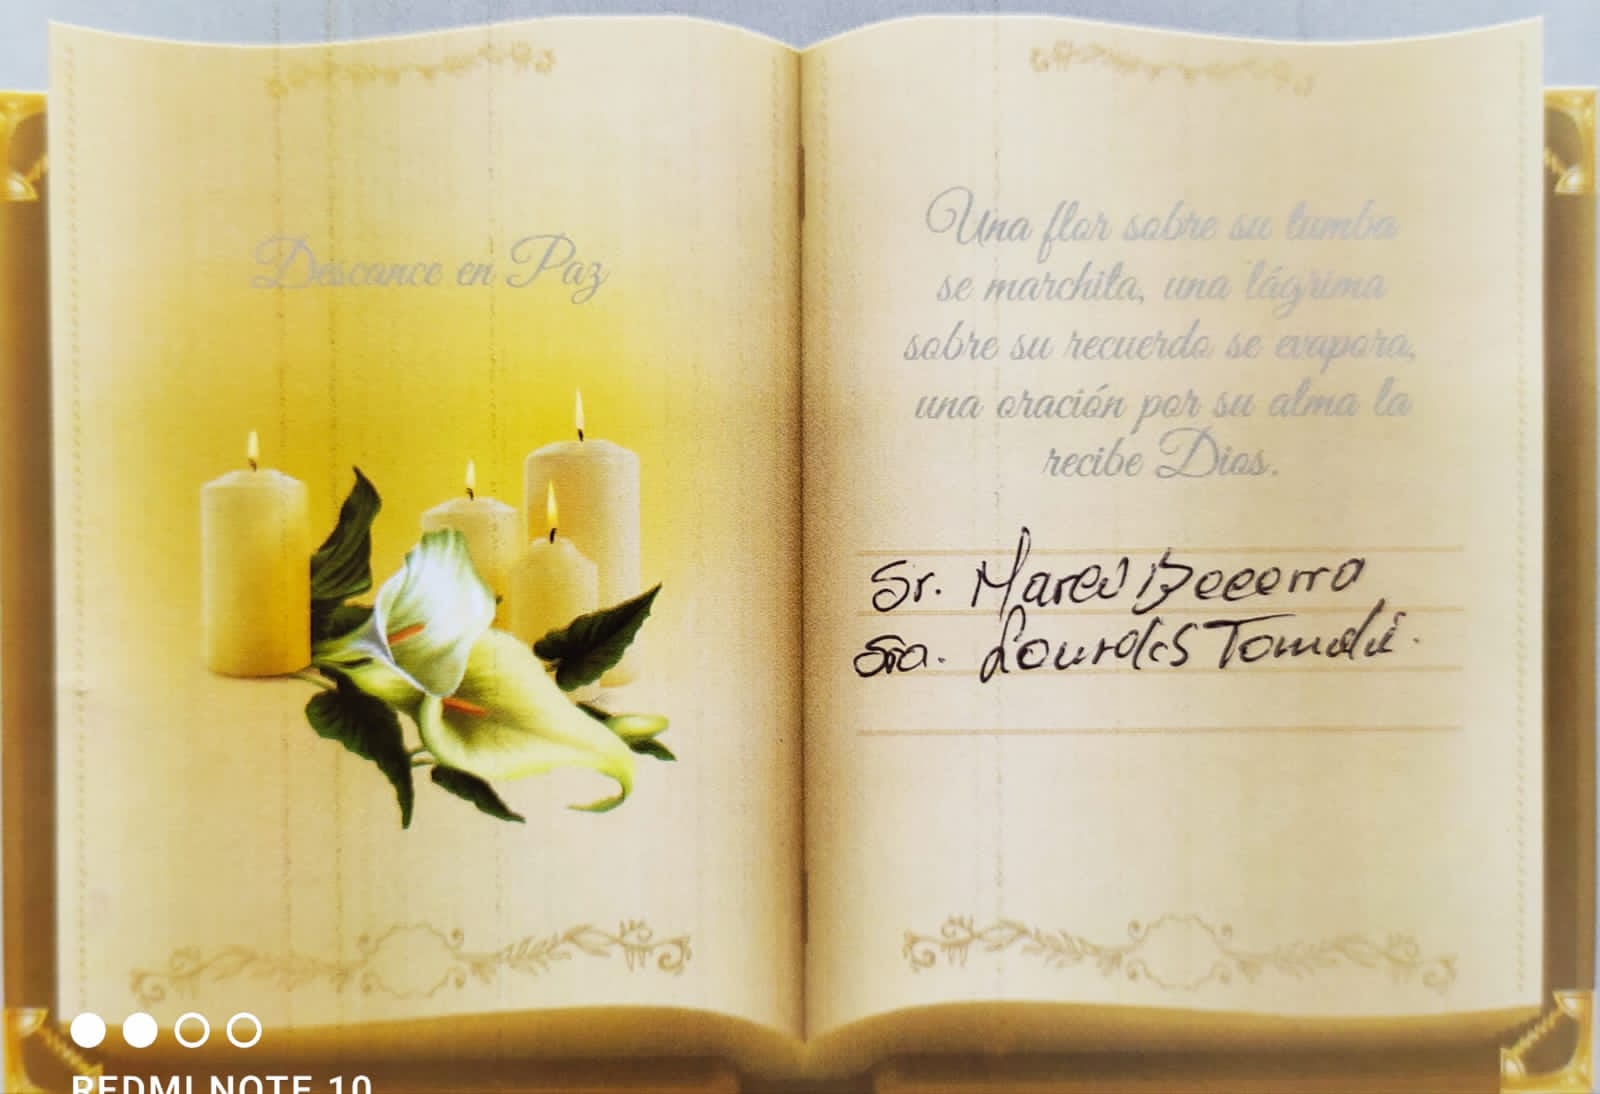 Descance en Paz
Una flor sobre su tumba
se marchita, una lágrima
sobre su recuerdo se evapora,
una oración por su alma la
recibe Dios.
Sr. Marco Becerra
Sra. Lourdes Tomalá.
REDMI NOTE 10